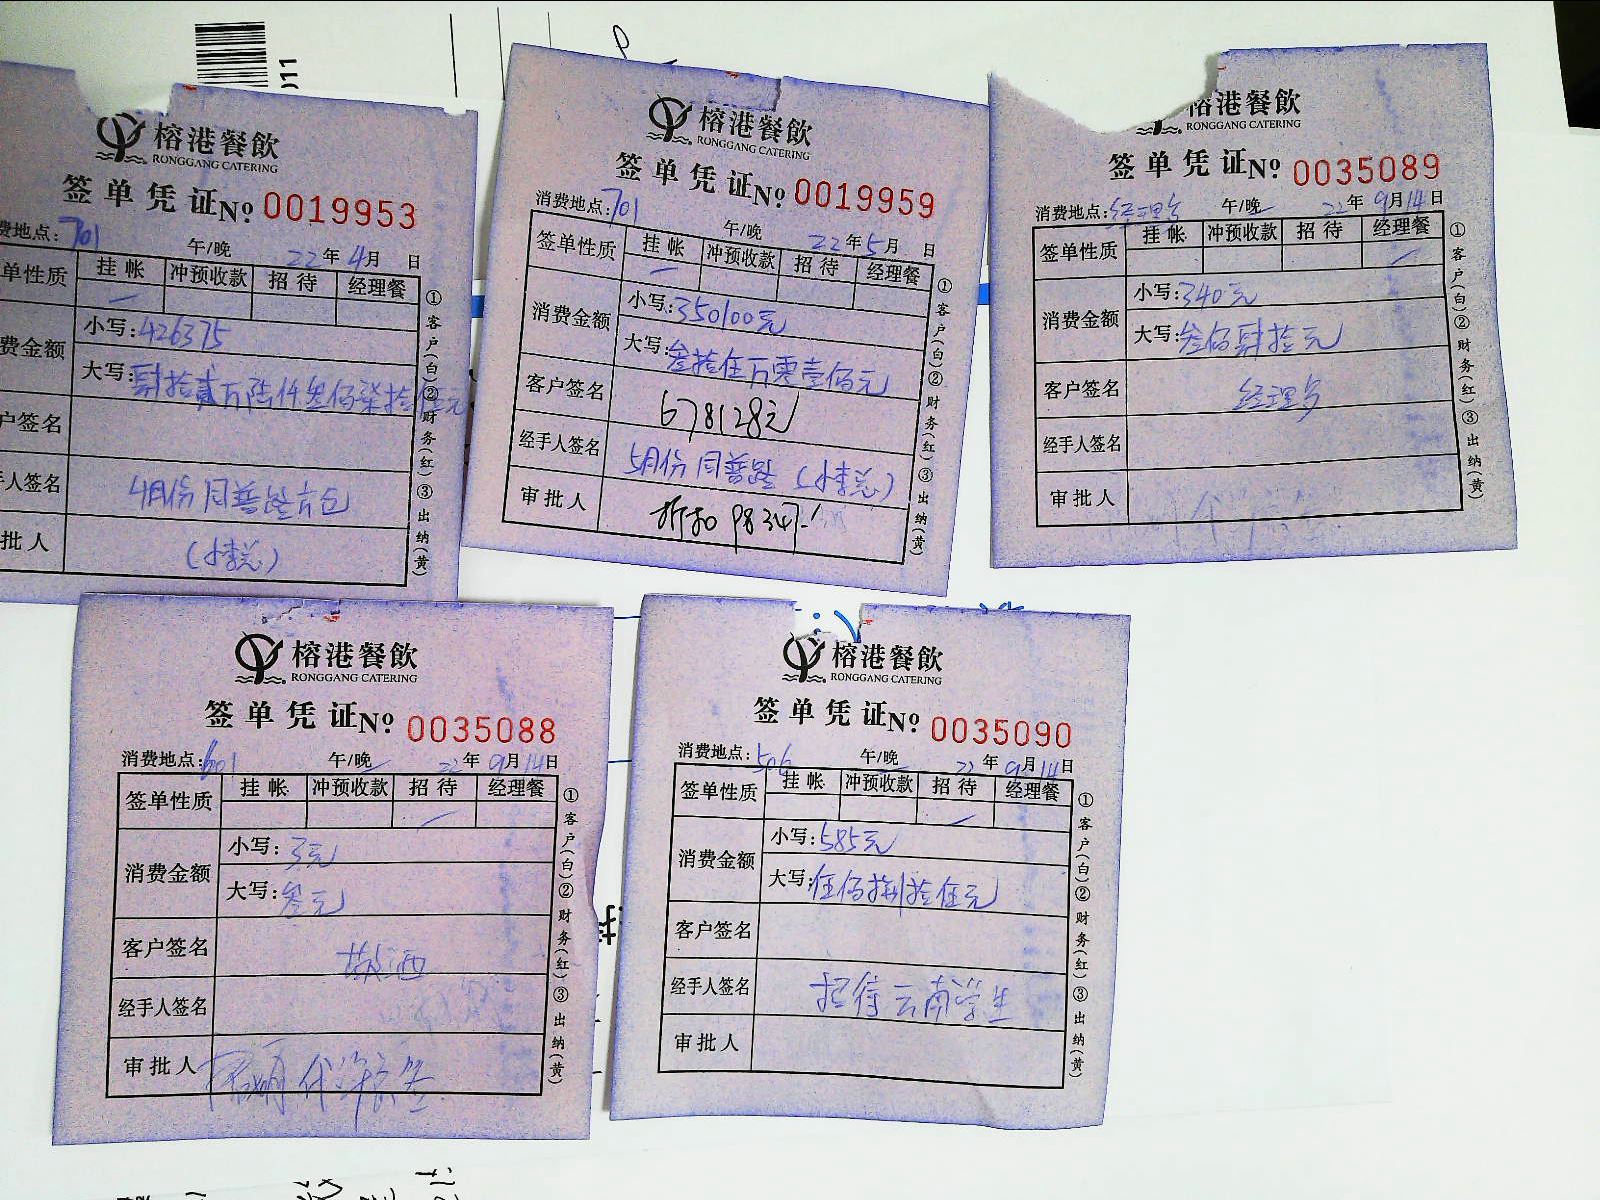 011
榕港餐飲
RONGGANG CATERING
签单凭证 No 0019953
费地点: 701 午/晚 22年4月 日
单性质 挂帐 冲预收款 招待 经理餐
费金额 小写: 426375
大写: 肆拾贰万陆仟叁佰柒拾伍元
户签名
手人签名 4月份同普路方包
批人 (小李总)
①客户(白)②财务(红)③出纳(黄)
榕港餐飲
RONGGANG CATERING
签单凭证 No 0019959
消费地点: 701 午/晚 22年5月 日
签单性质 挂帐 冲预收款 招待 经理餐
消费金额 小写: 350100元
大写: 叁拾伍万零壹佰元
客户签名 678128元
经手人签名 5月份同普路(小李总)
审批人 折扣 98347
①客户(白)②财务(红)③出纳(黄)
榕港餐飲
RONGGANG CATERING
签单凭证 No 0035089
消费地点: 午/晚 22年9月14日
签单性质 挂帐 冲预收款 招待 经理餐
消费金额 小写: 340元
大写: 叁佰肆拾元
客户签名 经理
经手人签名
审批人
①客户(白)②财务(红)③出纳(黄)
榕港餐飲
RONGGANG CATERING
签单凭证 No 0035088
消费地点: 601 午/晚 22年9月14日
签单性质 挂帐 冲预收款 招待 经理餐
消费金额 小写: 3元
大写: 叁元
客户签名
经手人签名
审批人
①客户(白)②财务(红)③出纳(黄)
榕港餐飲
RONGGANG CATERING
签单凭证 No 0035090
消费地点: 506 午/晚 22年9月14日
签单性质 挂帐 冲预收款 招待 经理餐
消费金额 小写: 585元
大写: 伍佰捌拾伍元
客户签名
经手人签名 招待云南学生
审批人
①客户(白)②财务(红)③出纳(黄)